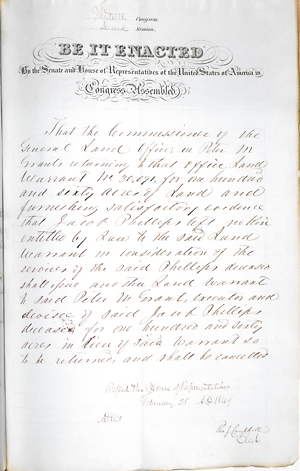 Thirtieth Congress
Second Session
BE IT ENACTED
By the Senate and House of Representatives of the United States of America in
Congress Assembled
That the Commissioner of the
General Land Office, on Peter M
Grants returning to that office Land
Warrant No for one hundred
and sixty acres of Land and
furnishing satisfactory evidence
that Jacob Phillips left no
entitled by Law to the said Land
Warrant in consideration of the
services of the said Phillips deceased
shall issue another Land Warrant
to said Peter M Grant, executor and
devisee of said Jacob Phillips
deceased for one hundred and sixty
acres in lieu of said Warrant so
to be returned, and shall be cancelled
Passed the House of Representatives
February 28 A.D. 1849
Attest
Campbell
Clerk